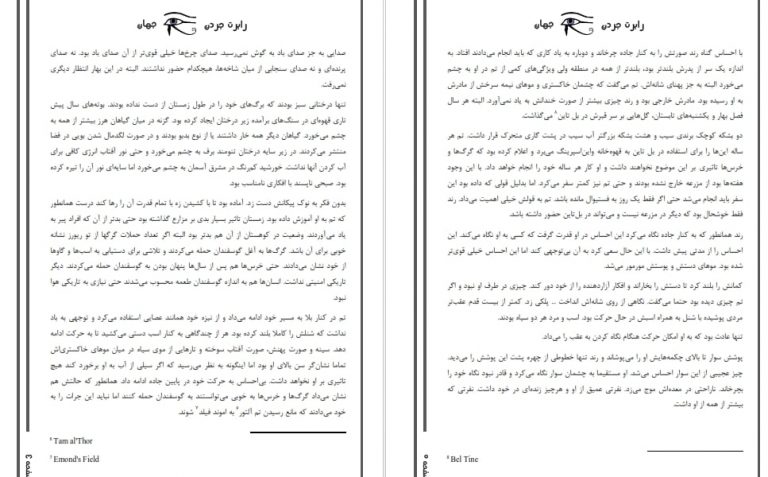 رابرت جردن
جهان
صدایی به جز صدای باد به گوش نمی‌رسید. صدای چرخ‌ها خیلی قوی‌تر از آن صدای باد بود. نه صدای
پرنده‌ای و نه صدای سنجابی از میان شاخه‌ها، هیچکدام حضور نداشتند. البته در این بهار انتظار دیگری
نمی‌رفت.
تنها درختانی سبز بودند که برگ‌های خود را در طول زمستان از دست نداده بودند. بوته‌های سال پیش
تاری قهوه‌ای در سنگ‌های برآمده زیر درختان ایجاد کرده بود. گزنه در میان گیاهان هرز بیشتر از همه به
چشم می‌خورد. گیاهان دیگر همه خار داشتند یا از نوع بدبو بودند و در صورت لگدمال شدن بویی در فضا
منتشر می‌کردند. در زیر سایه درختان تنومند برف به چشم می‌خورد و حتی نور آفتاب انرژی کافی برای
آب کردن آنها نداشت. خورشید کمرنگ در مشرق آسمان به چشم می‌خورد اما سایه‌ای نور آن را تیره کرده
بود. صبحی ناپسند با افکاری نامناسب بود.
بدون فکر به نوک پیکانش دست زد. آماده بود تا با کشیدن زه با تمام قدرت آن را رها کند درست همانطور
که تم به او آموزش داده بود. زمستان تاثیر بسیار بدی بر مزارع گذاشته بود حتی بدتر از آن که افراد پیر به
یاد می‌آوردند. وضعیت در کوهستان از آن هم بدتر بود البته اگر تعداد حملات گرگها از تو ریورز نشانه
خوبی برای آن باشد. گرگ‌ها به آغل گوسفندان حمله می‌کردند و تلاشی برای دستیابی به اسب‌ها و گاوها
از خود نشان می‌دادند. حتی خرس‌ها هم پس از سال‌ها پنهان بودن به گوسفندان حمله می‌کردند. دیگر
تاریکی امنیتی نداشت. انسان‌ها هم به اندازه گوسفندان طعمه محسوب می‌شدند حتی نیازی به تاریکی هوا
نبود.
تم در کنار بلا به مسیر خود ادامه می‌داد و از نیزه خود همانند عصایی استفاده می‌کرد و توجهی به باد
نداشت که شنلش را کاملا بلند کرده بود. هر از چندگاهی به کنار اسب دستی می‌کشید تا به حرکت ادامه
دهد. سینه و صورت پهنش، صورت آفتاب سوخته و تارهایی از موی سیاه در میان موهای خاکستری‌اش
تماما نشان‌گر سن بالای او بود اما اینگونه به نظر می‌رسید که اگر سیلی از آب به او برخورد کند هیچ
تاثیری بر او نخواهد داشت. بی‌احساس به حرکت خود در پایین جاده ادامه داد. همانطور که حالتش هم
نشان می‌داد گرگ‌ها و خرس‌ها به خوبی می‌توانستند به گوسفندان حمله کنند اما نباید این جرات را به
خود می‌دادند که مانع رسیدن تم آلتور⁶ به اموند فیلد⁷ شوند.
⁶ Tam al'Thor
⁷ Emond's Field
صفحه ۴
رابرت جردن
جهان
با احساس گناه رند صورتش را به کنار جاده چرخاند و دوباره به یاد کاری که باید انجام می‌دادند افتاد. به
اندازه یک سر از پدرش بلندتر بود، بلندتر از همه در منطقه ولی ویژگی‌های کمی از تم در او به چشم
می‌خورد البته به جز پهنای شانه‌اش. تم می‌گفت که چشمان خاکستری و موهای نیمه سرخش از مادرش
به او رسیده بود. مادرش خارجی بود و رند چیزی بیشتر از صورت خندانش به یاد نمی‌آورد. البته هر سال
فصل بهار و یکشنبه‌های تابستان، گل‌هایی بر سر قبرش در بل تاین⁸ می‌گذاشت.
دو بشکه کوچک برندی سیب و هشت بشکه بزرگتر آب سیب در پشت گاری متحرک قرار داشت. تم هر
ساله این‌ها را برای استفاده در بل تاین به قهوه‌خانه واین‌اسپرینگ می‌برد و اعلام کرده بود که گرگ‌ها و
خرس‌ها تاثیری بر این موضوع نخواهند داشت و او کار هر ساله خود را انجام خواهد داد. با این وجود
هفته‌ها بود از مزرعه خارج نشده بودند و حتی تم نیز کمتر سفر می‌کرد. اما بدلیل قولی که داده بود این
سفر باید انجام می‌شد حتی اگر فقط یک روز به فستیوال مانده باشد. تم به قولش خیلی اهمیت می‌داد. رند
فقط خوشحال بود که دیگر در مزرعه نیست و می‌تواند در بل‌تاین حضور داشته باشد.
رند همانطور که به کنار جاده نگاه می‌کرد این احساس در او قدرت گرفت که کسی به او نگاه می‌کند. این
احساس را از مدتی پیش داشت. با این حال سعی کرد به آن بی‌توجهی کند اما این احساس خیلی قوی‌تر
شده بود. موهای دستش و پوستش مورمور می‌شد.
کمانش را بلند کرد تا دستش را بخاراند و افکار آزاردهنده را از خود دور کند. چیزی در طرف او نبود و اگر
تم چیزی دیده بود حتما می‌گفت. نگاهی از روی شانه‌اش انداخت .. پلکی زد. کمتر از بیست قدم عقب‌تر
مردی پوشیده با شنل به همراه اسبش در حال حرکت بود. اسب و مرد هر دو سیاه بودند.
تنها عادت بود که به او امکان حرکت هنگام نگاه کردن به عقب را می‌داد.
پوشش سوار تا بالای چکمه‌هایش او را می‌پوشاند و رند تنها خطوطی از چهره پشت این پوشش را می‌دید.
چیز عجیبی از این سوار احساس می‌شد. او مستقیما به چشمان سوار نگاه می‌کرد و قادر نبود نگاه خود را
بچرخاند. ناراحتی در معده‌اش موج می‌زد. نفرتی عمیق از او و هرچیز زنده‌ای در خود داشت. نفرتی که
بیشتر از همه از او داشت.
⁸ Bel Tine